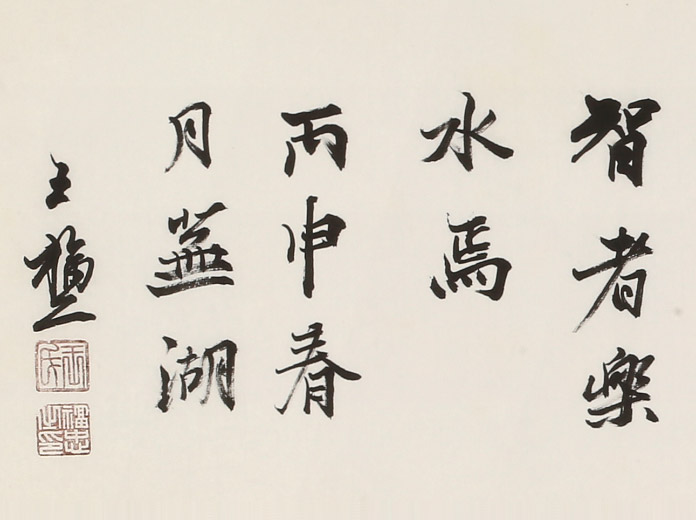 智者樂
水焉
丙申春
月蕪湖
王